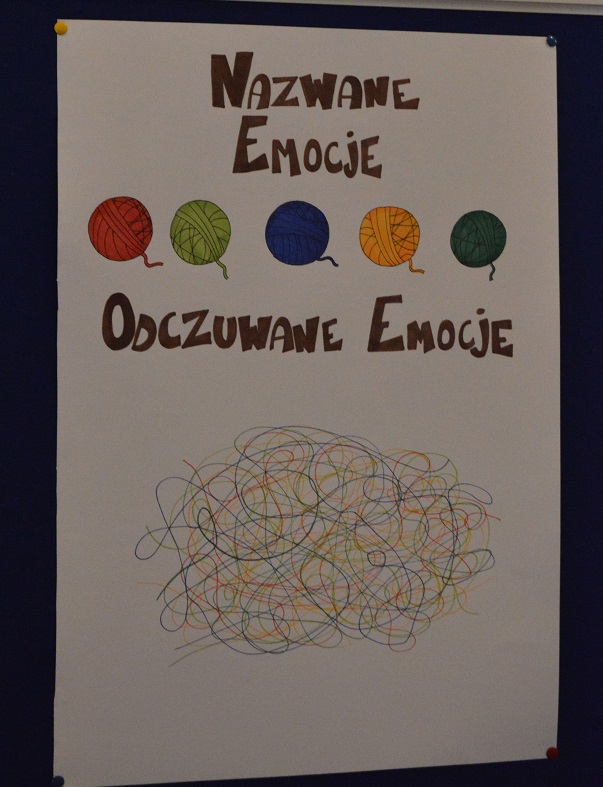 NAZWANE
EMOCJE
ODCZUWANE EMOCJE